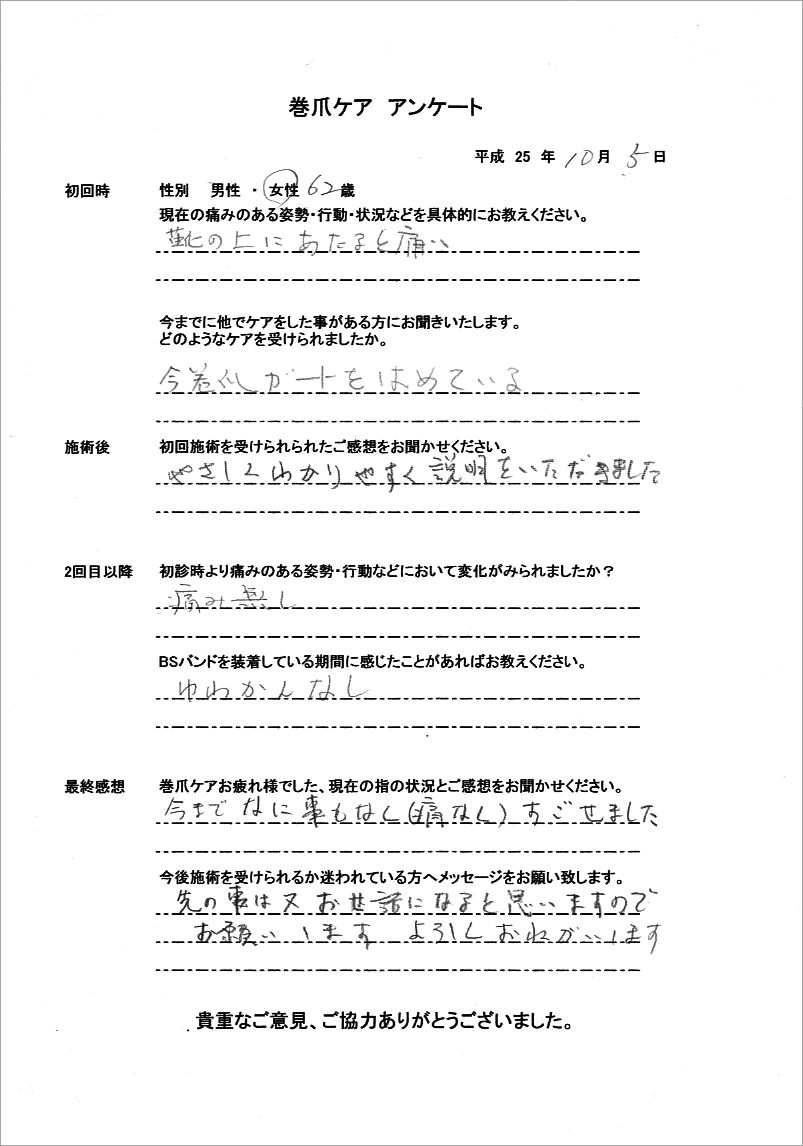 巻爪ケア アンケート
平成 25 年 10月 5日
初回時 性別 男性 ・ 女性 62歳
現在の痛みのある姿勢・行動・状況などを具体的にお教えください。
靴の上にあたると痛い
今までに他でケアをした事がある方にお聞きいたします。
どのようなケアを受けられましたか。
今 ガートをはめている
施術後 初回施術を受けられられたご感想をお聞かせください。
やさしくわかりやすく説明をいただきました
2回目以降 初診時より痛みのある姿勢・行動などにおいて変化がみられましたか？
痛み無し
BSバンドを装着している期間に感じたことがあればお教えください。
ゆわかんなし
最終感想 巻爪ケアお疲れ様でした、現在の指の状況とご感想をお聞かせください。
今までなに事もなく(痛なく)すごせました
今後施術を受けられるか迷われている方へメッセージをお願い致します。
先の事は又お世話になると思いますので
お願いします よろしくおねがいします
貴重なご意見、ご協力ありがとうございました。